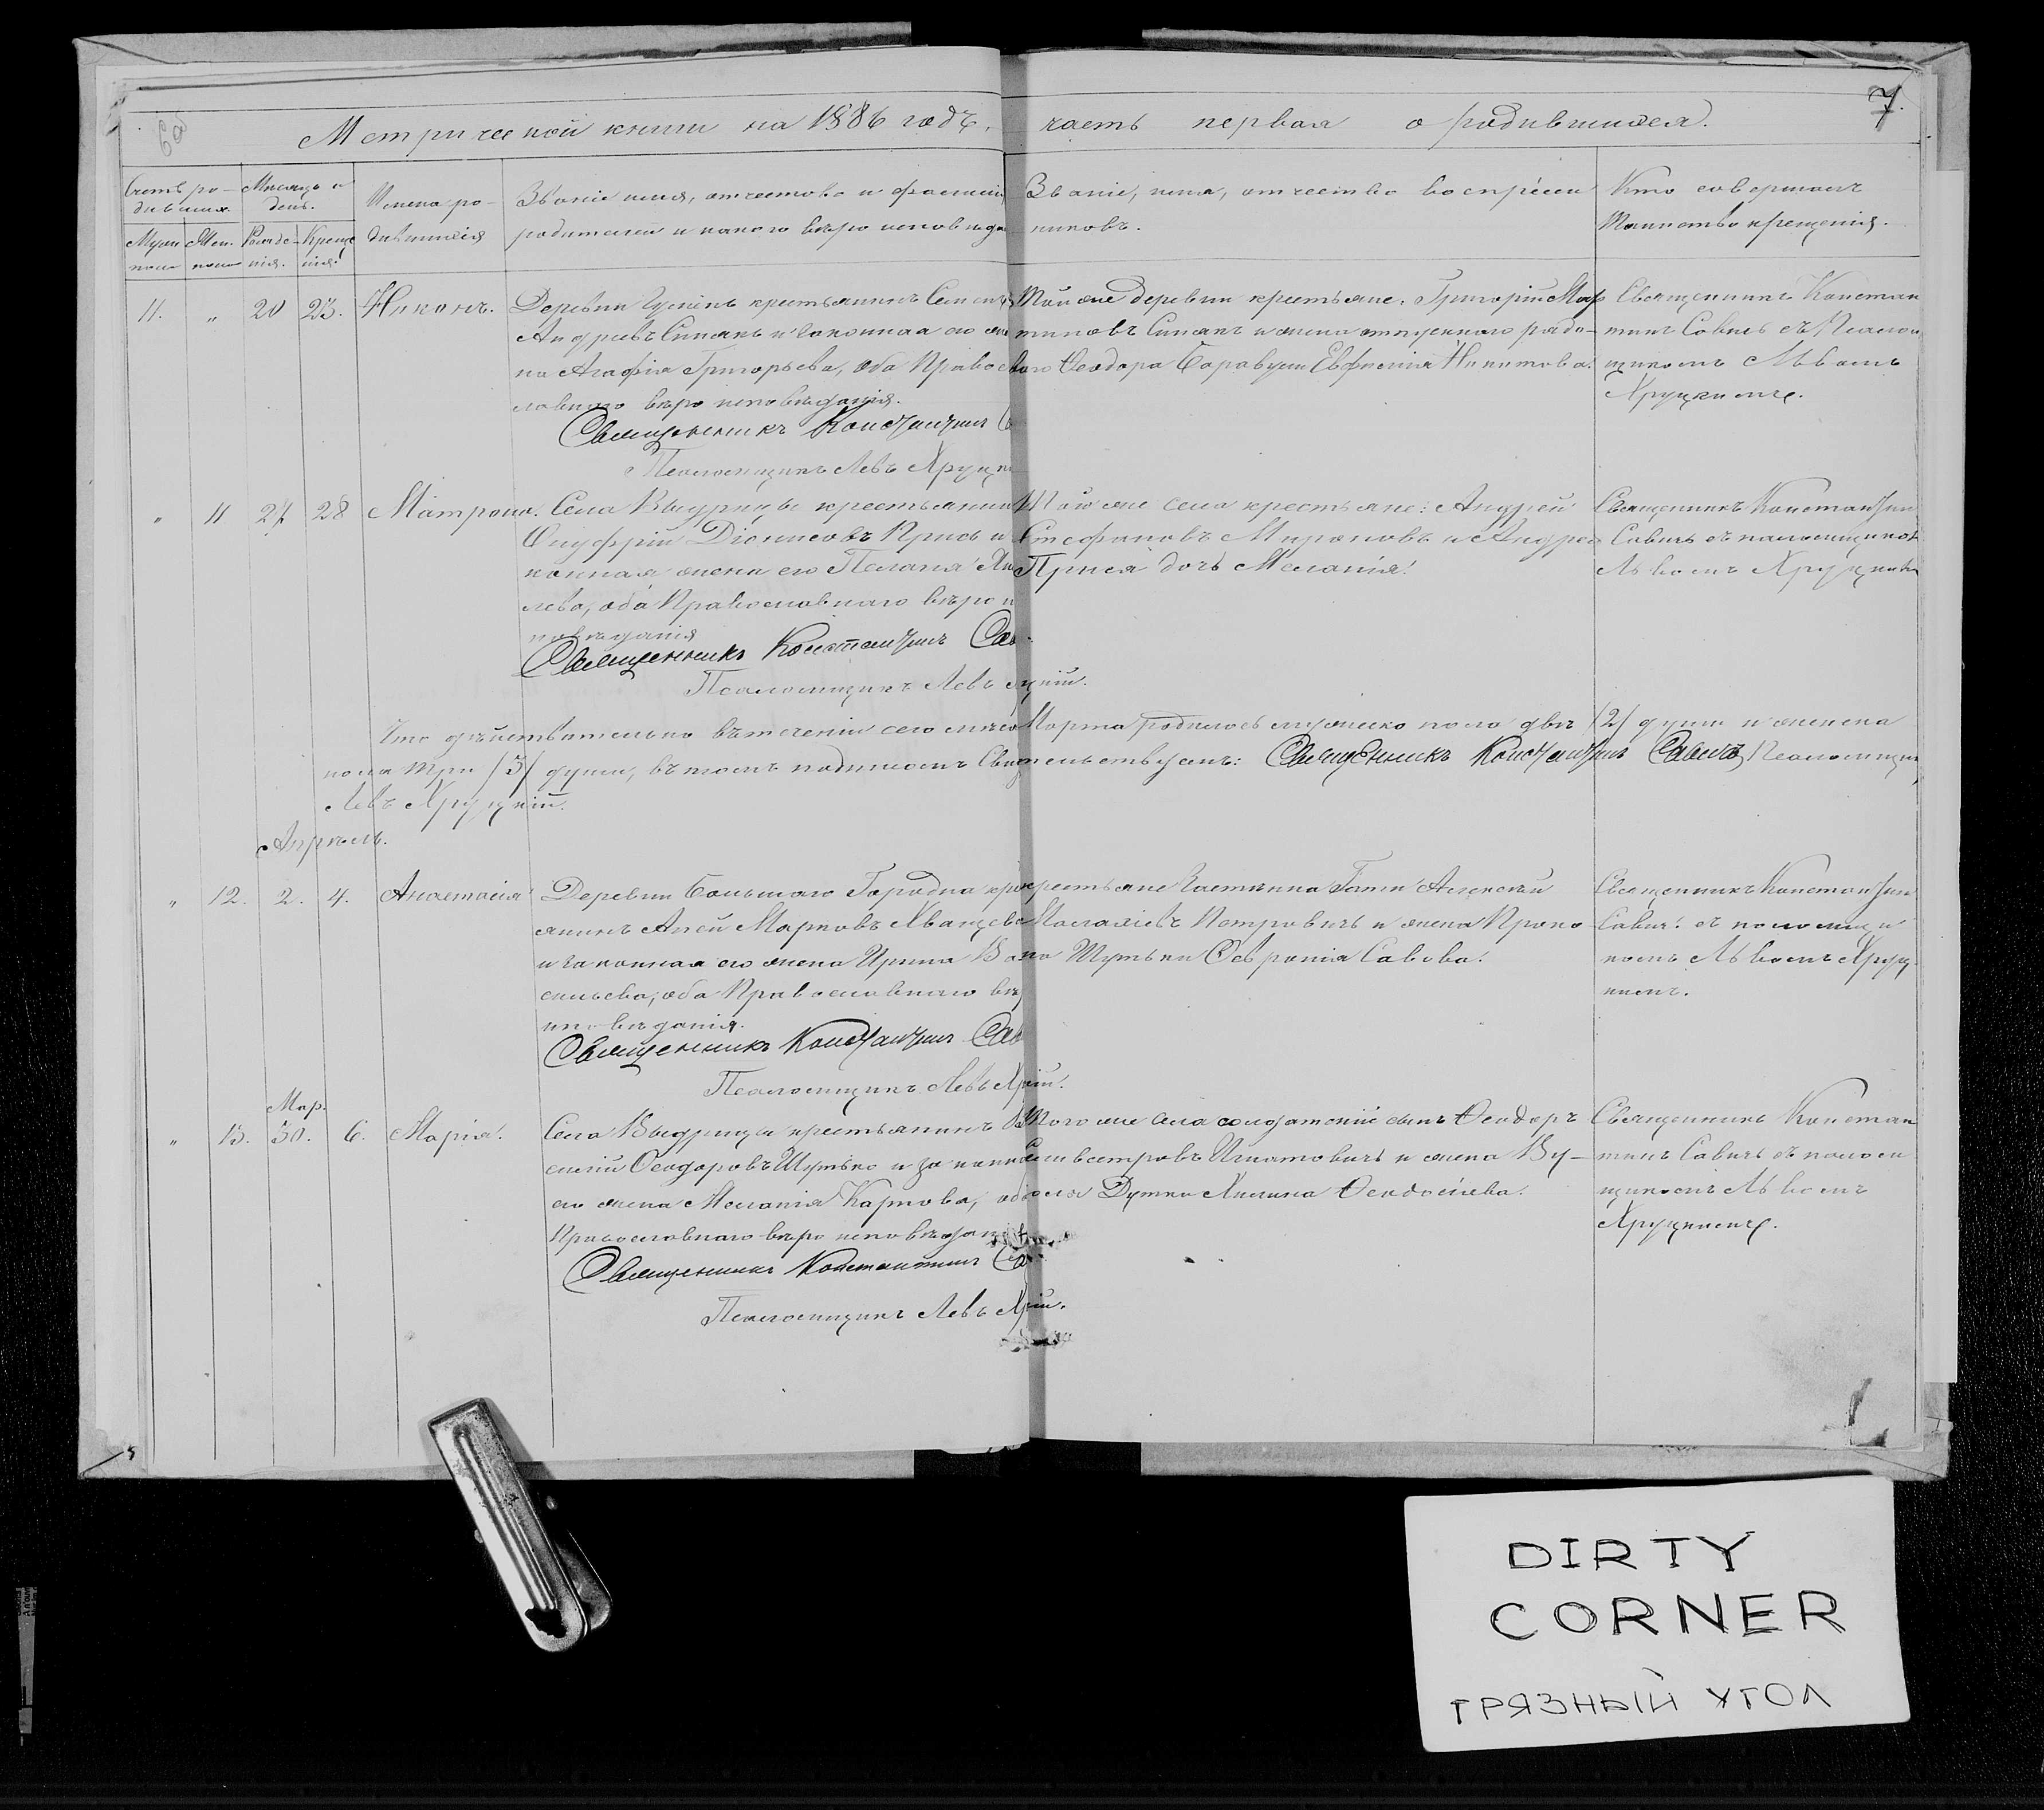 7.
Метрической книги на 1886 годъ, часть первая о родившихся.
Счетъ ро-
дившихся.
Мѣсяцъ и
день.
Муж
Жен.
Рожде-
нія.
Креще
нія.
Имена ро-
дившихся
Званіе имя, отчество и фамилія
родителей и какого вѣро исповѣда
Званіе, имя, отчество воспріем
никовъ.
Кто совершалъ
таинство крещенія.
11. " 20 23. Никонъ.
Деревни крестьянинъ
Андреевъ и законная его же
на Агафія Григорьева, оба Правос
лавнаго вѣро исповѣданія.
Священникъ Константинъ
Псаломщикъ Левъ Хруцк
Той же деревни крестьяне: Григорій Мар
тиновъ и жена отпускного рядо-
вого Ѳеодора Евфимія Никитова.
Священникъ Констан
тинъ Савичъ съ Псалом
щикомъ Львомъ
Хруцкимъ.
" 11 27 28 Матрона.
Села Выдрицы крестьянин
Онуфрій Діонисовъ и
конная жена его Пелагія
лева, оба Православнаго вѣро и
повѣданія
Священникъ Константинъ Сав
Псаломщикъ Левъ цкій.
Того же села крестьяне: Андрей
Стефановъ Мироновъ и Андрея
Приса дочь Меланія.
Священникъ Константин
Савичъ съ псаломщиком
Львомъ Хруцким
Что дѣйствительно въ теченіи сего мѣся Марта родилось мужеско пола двѣ /2/ души и женска
пола три /3/ души, въ томъ подписомъ Свидетельствуемъ: Священникъ Константинъ Савичъ, Псаломщик
Левъ Хруцкій.
Апрѣль.
" 12. 2. 4. Анастасія
Деревни Большаго Городна кре
янинъ Марковъ
и законная его жена Ирина Ва
сильева, оба Православнаго вѣ
исповѣданія.
Священникъ Константинъ Сав
Псаломщикъ Левъ Хрій.
крестьяне Гати Алексѣй
Петровичъ и жена Проко
па Шутьки Февронія Савова.
Священникъ Константин
Савичъ съ псаломщи
комъ Львомъ Хруц
кимъ.
Мар.
" 13. 30. 6. Марія.
Села Выдрицы крестьянинъ
силій Ѳеодоровъ Шутько и законна
его жена Меланія Карпова, оба
Православнаго вѣро исповѣдан
Священникъ Константинъ Са
Псаломщикъ Левъ Хрій.
Того же села солдатскій сынъ Ѳеодоръ
Сильвестровъ Игнатовичъ и жена Ву-
Дутко Акилина Ѳеодосіева.
Священникъ Констан
тинъ Савичъ съ псалом
щикомъ Львомъ
Хруцкимъ.
DIRTY
CORNER
ГРЯЗНЫЙ УГОЛ